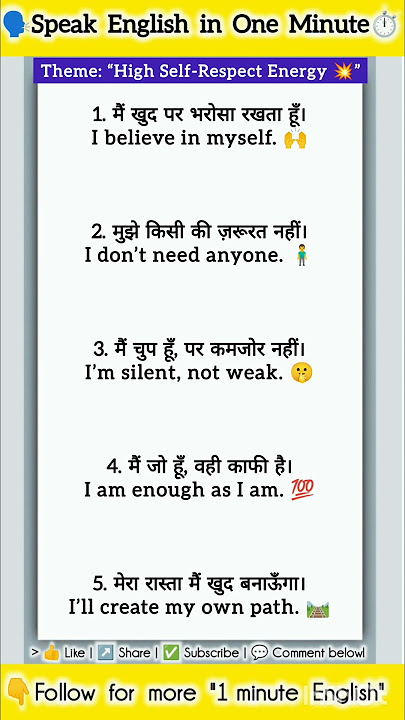 🗣️Speak English in One Minute⏱️
Theme: “High Self-Respect Energy 💥”
1. मैं खुद पर भरोसा रखता हूँ।
I believe in myself. 🙌
2. मुझे किसी की ज़रूरत नहीं।
I don’t need anyone. 🧍‍♂️
3. मैं चुप हूँ, पर कमजोर नहीं।
I’m silent, not weak. 🤫
4. मैं जो हूँ, वही काफी है।
I am enough as I am. 💯
5. मेरा रास्ता मैं खुद बनाऊँगा।
I’ll create my own path. 🛤️
> 👍 Like | ↗️ Share | ✅ Subscribe | 💬 Comment below!
👇Follow for more "1 minute English"